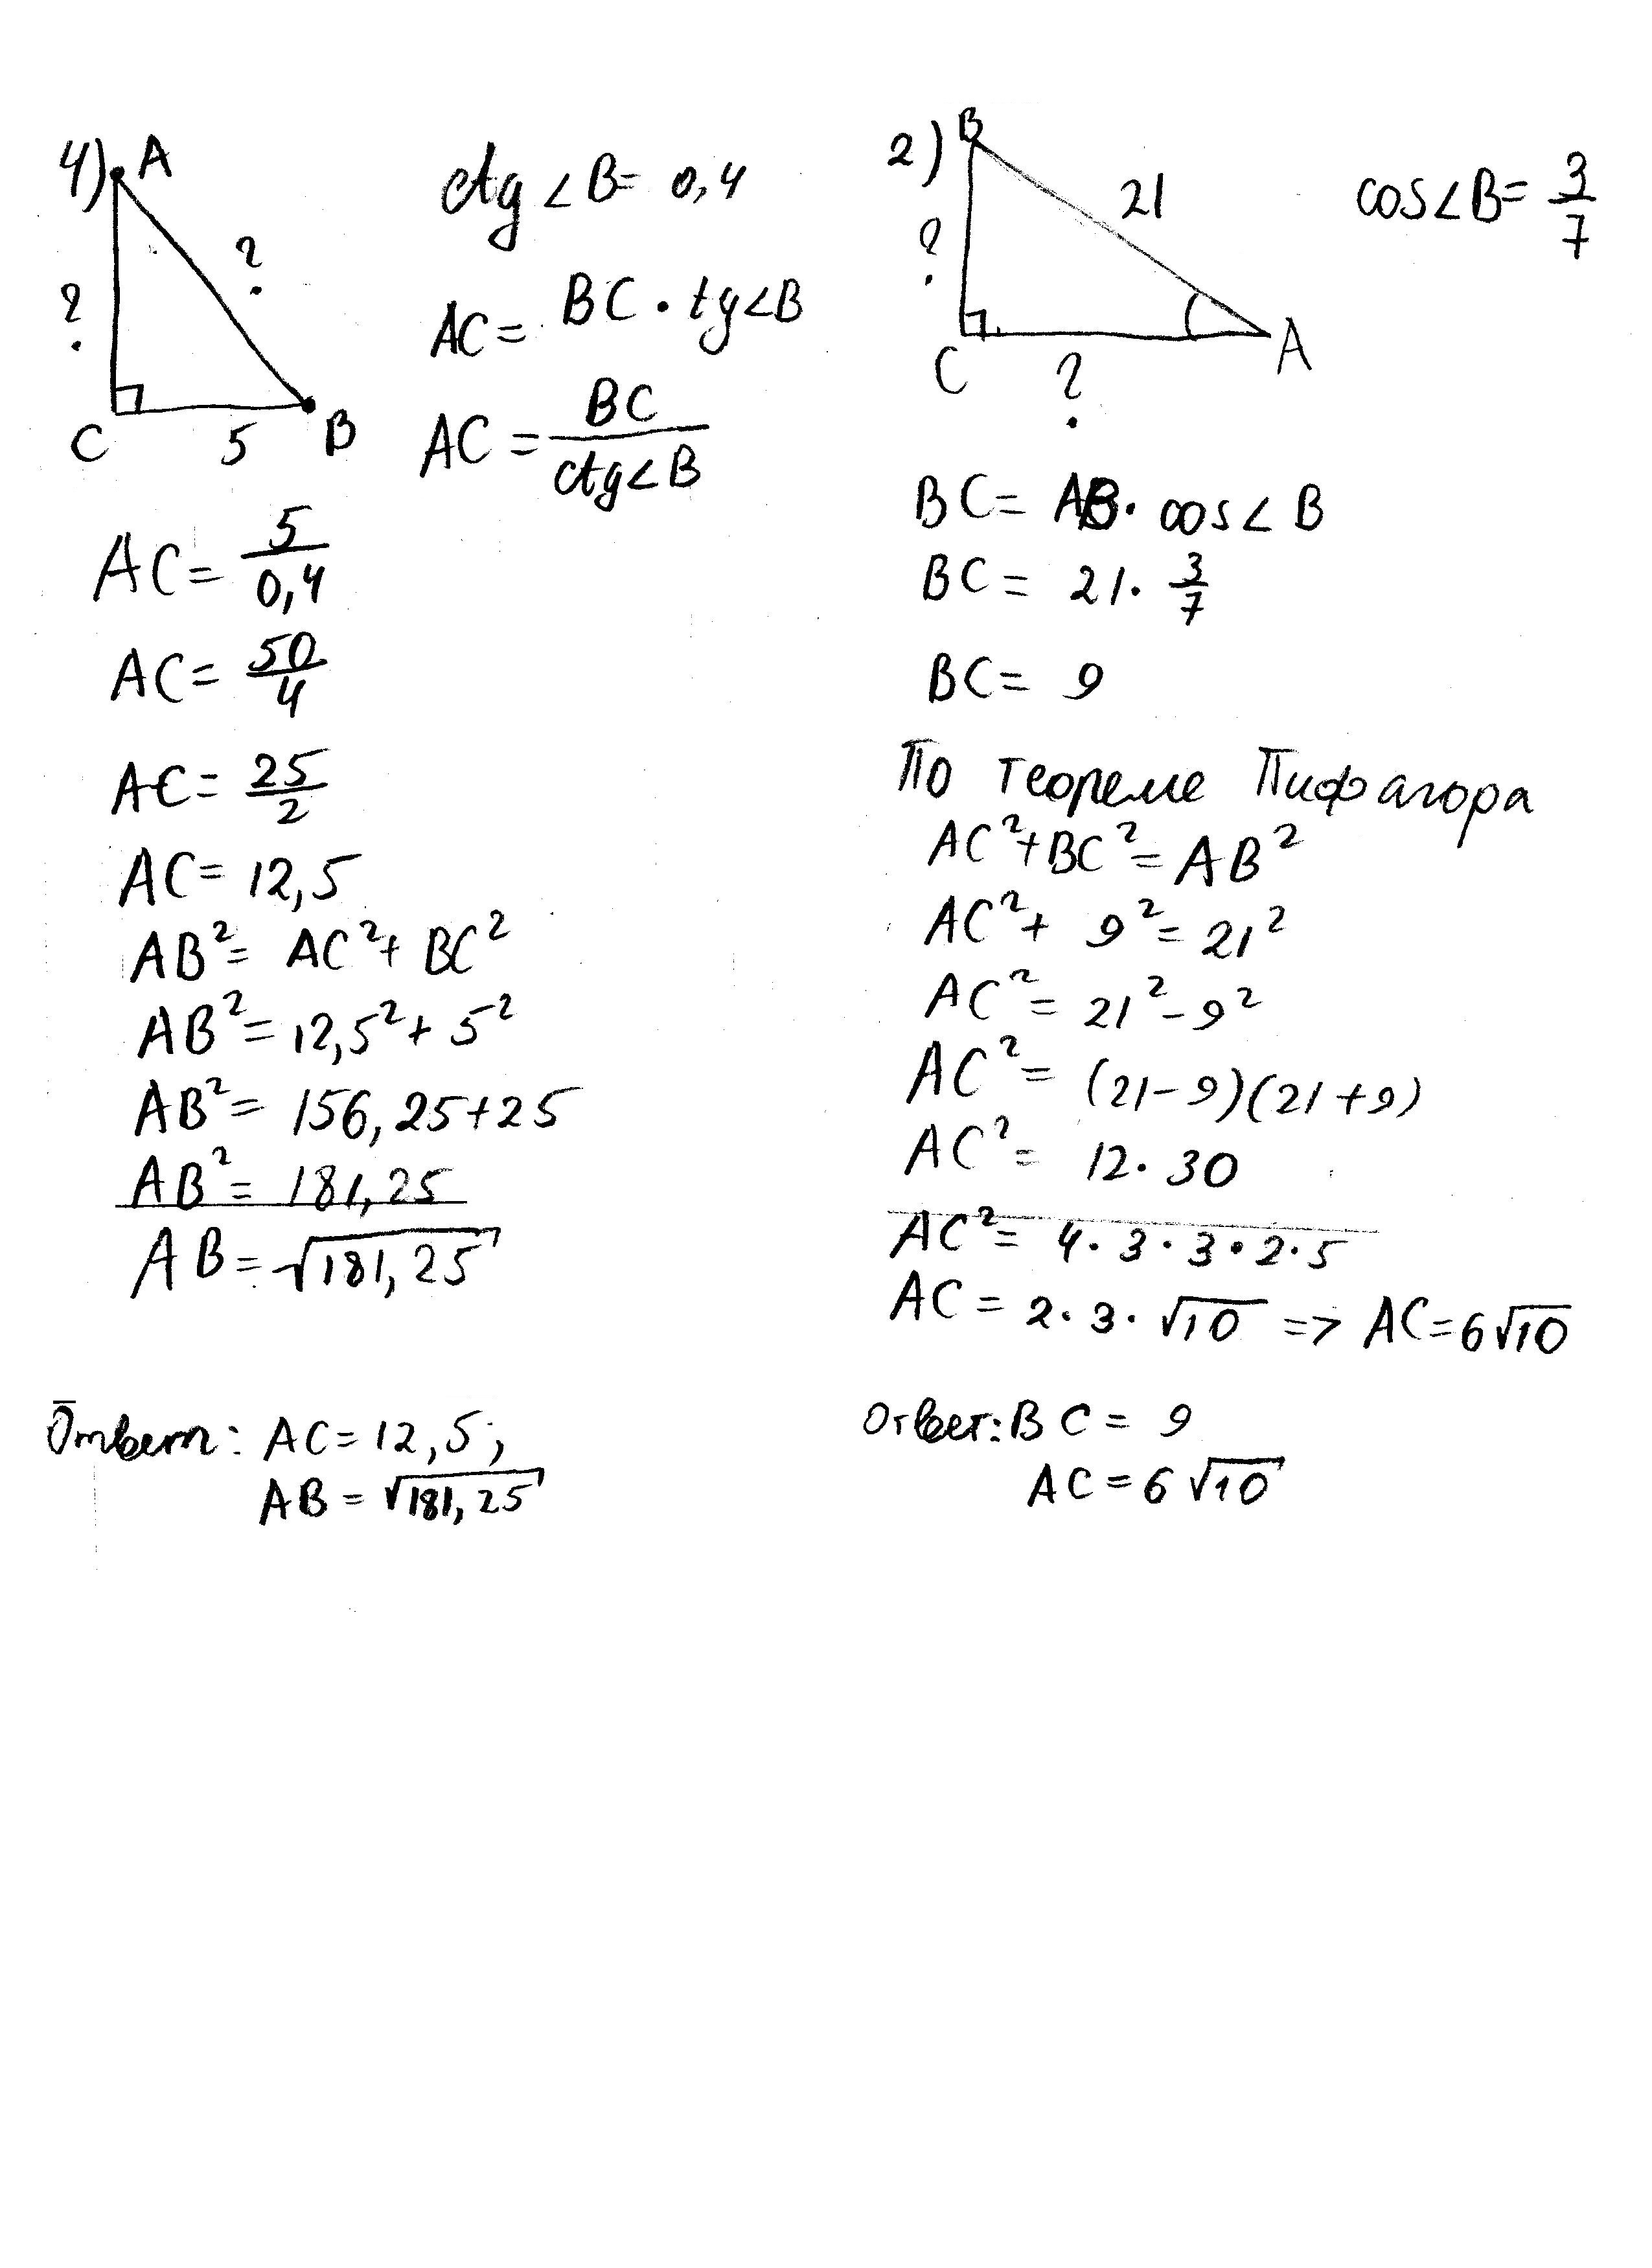 4) A
ctg ∠B = 0,4
?
?
AC = BC · tg∠B
C 5 B
AC = BC / ctg∠B
AC = 5 / 0,4
AC = 50 / 4
AC = 25 / 2
AC = 12,5
AB² = AC² + BC²
AB² = 12,5² + 5²
AB² = 156,25 + 25
AB² = 181,25
AB = √181,25
Ответ: AC = 12,5;
AB = √181,25
2) B
21
cos∠B = 3/7
?
C ? A
BC = AB · cos∠B
BC = 21 · 3/7
BC = 9
По теореме Пифагора
AC² + BC² = AB²
AC² + 9² = 21²
AC² = 21² - 9²
AC² = (21 - 9)(21 + 9)
AC² = 12 · 30
AC² = 4 · 3 · 3 · 2 · 5
AC = 2 · 3 · √10 => AC = 6√10
Ответ: BC = 9
AC = 6√10